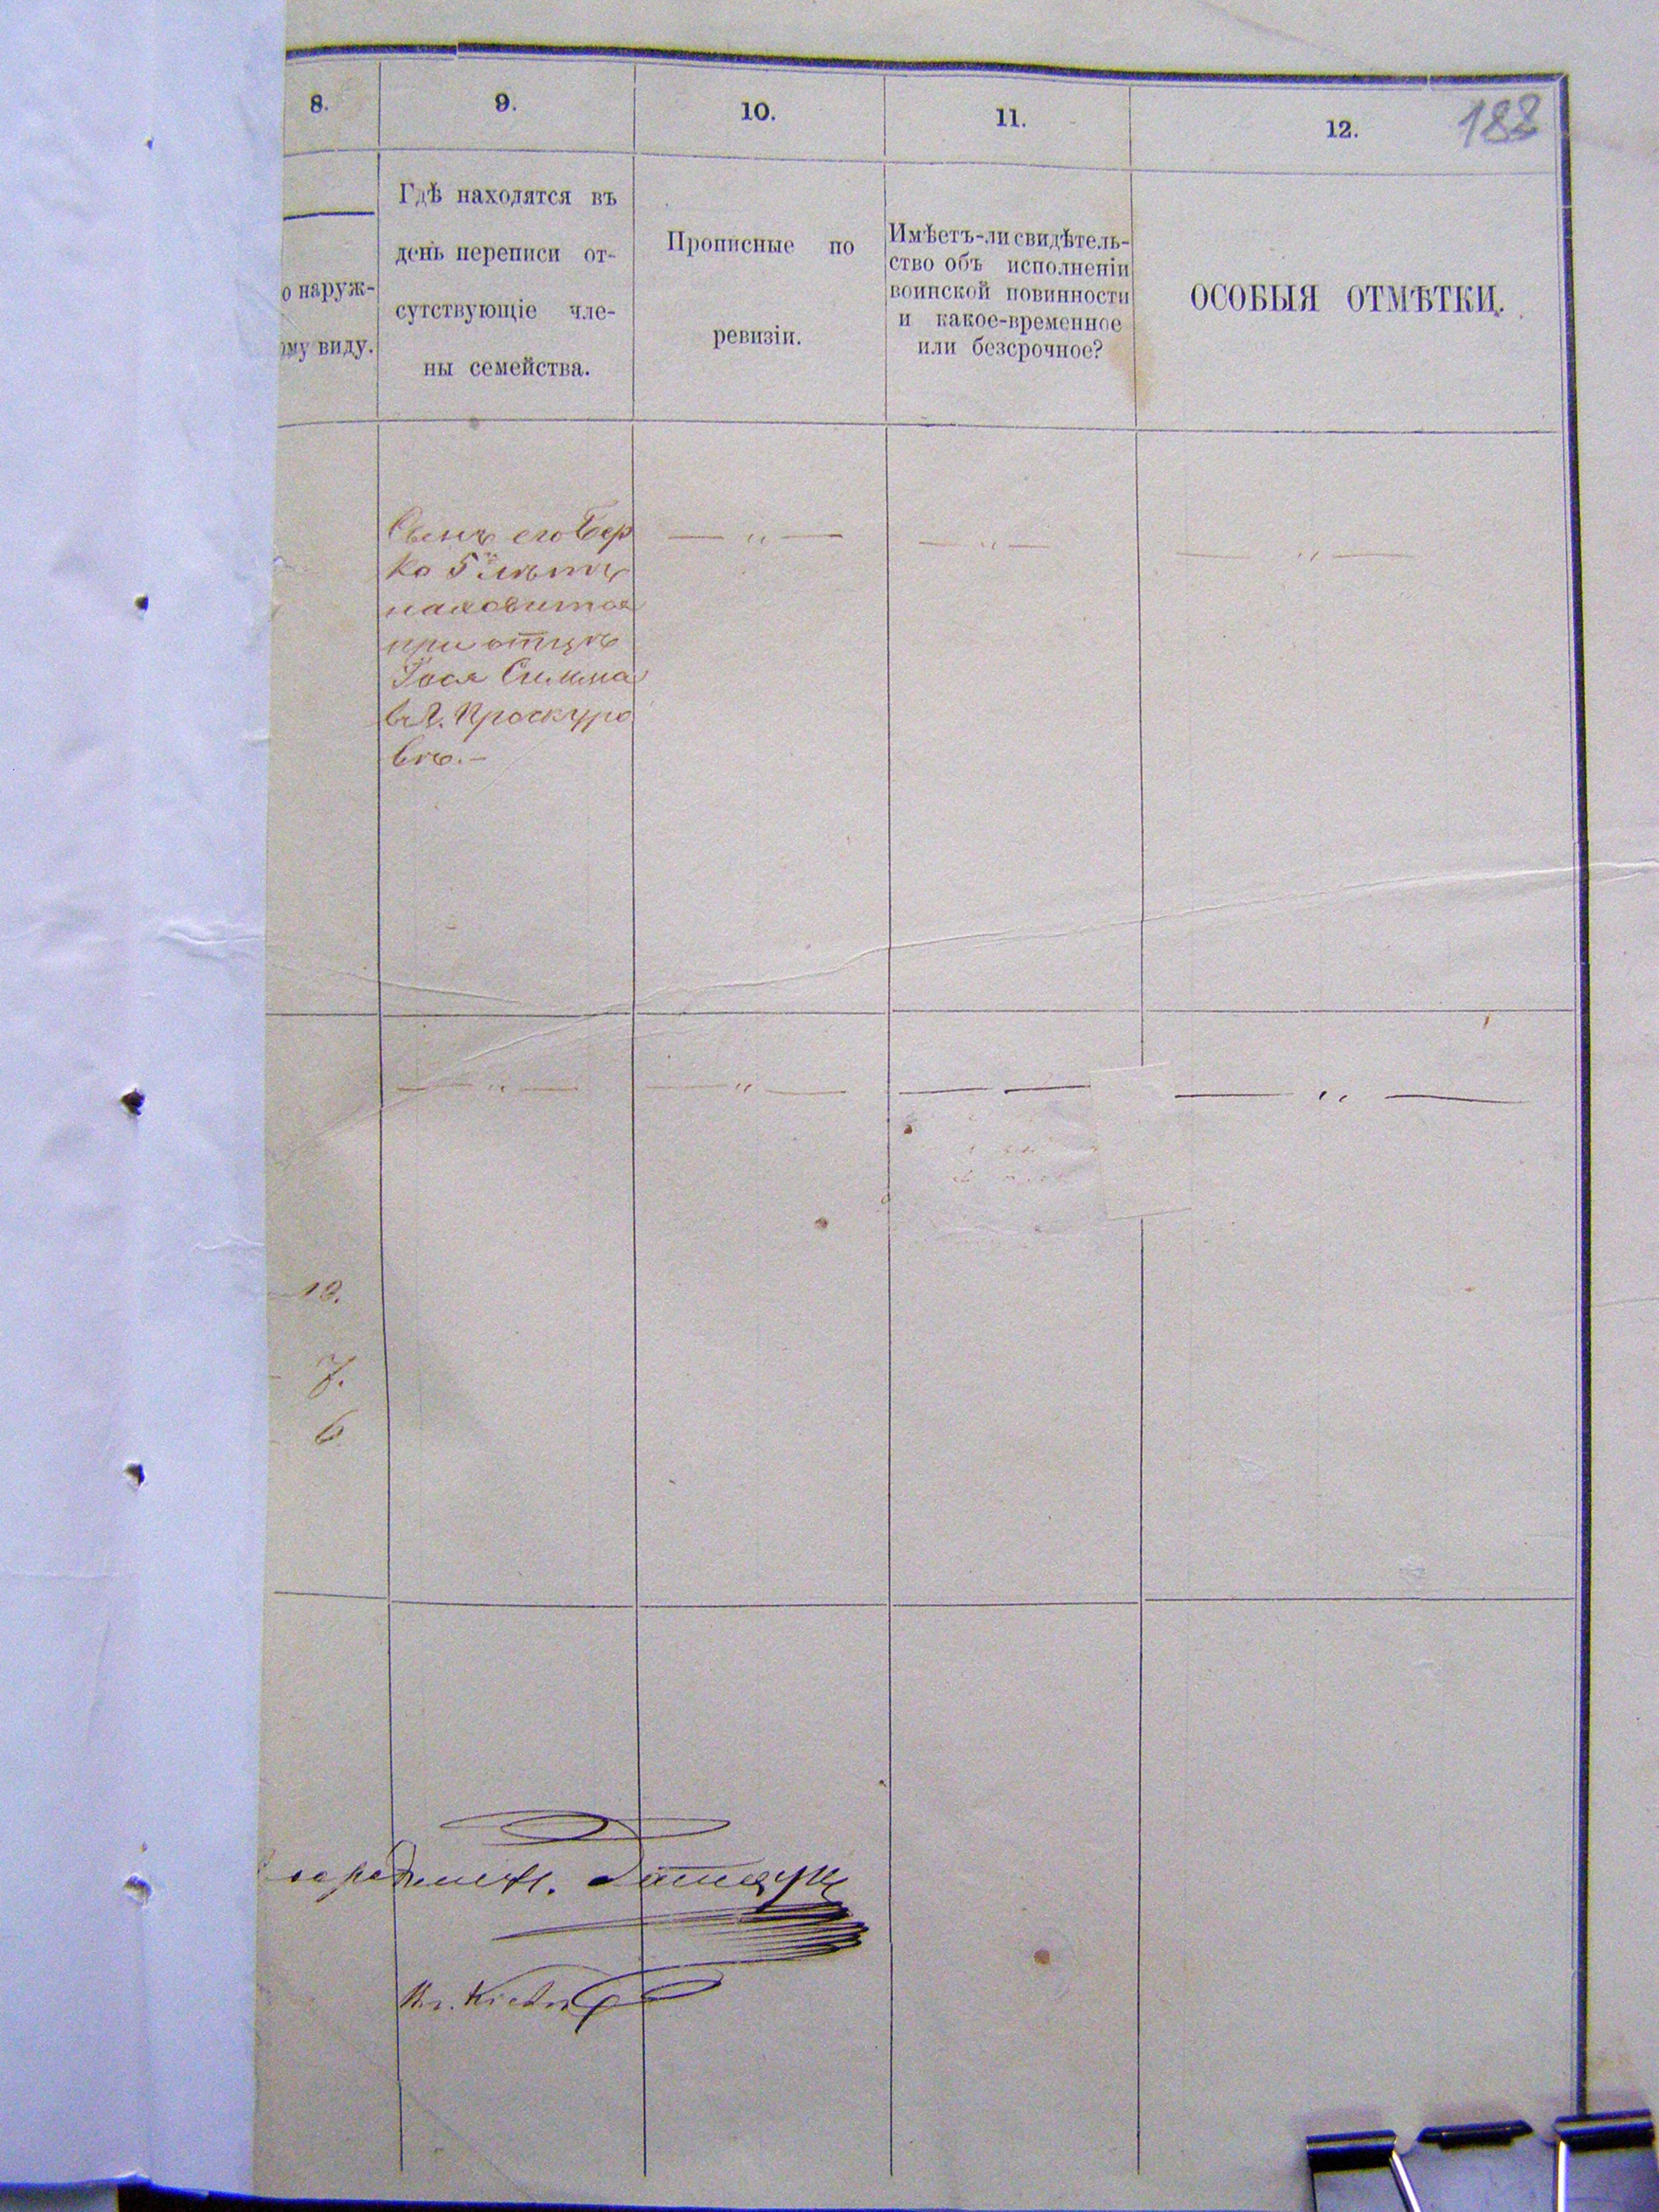 8.
9.
10.
11.
12.
188
о наруж-
ому виду.
Гдѣ находятся въ
день переписи от-
сутствующіе чле-
ны семейства.
Прописные по
ревизіи.
Имѣетъ-ли свидѣтель-
ство объ исполненіи
воинской повинности
и какое-временное
или безсрочное?
ОСОБЫЯ ОТМѢТКИ.
Сынъ его Бер
ко 5 лѣтъ
находится
при отцѣ
въ г. Проскуро
вѣ.—
— „ —
— „ —
— „ —
— „ —
— „ —
— —
— „ —
7.
6